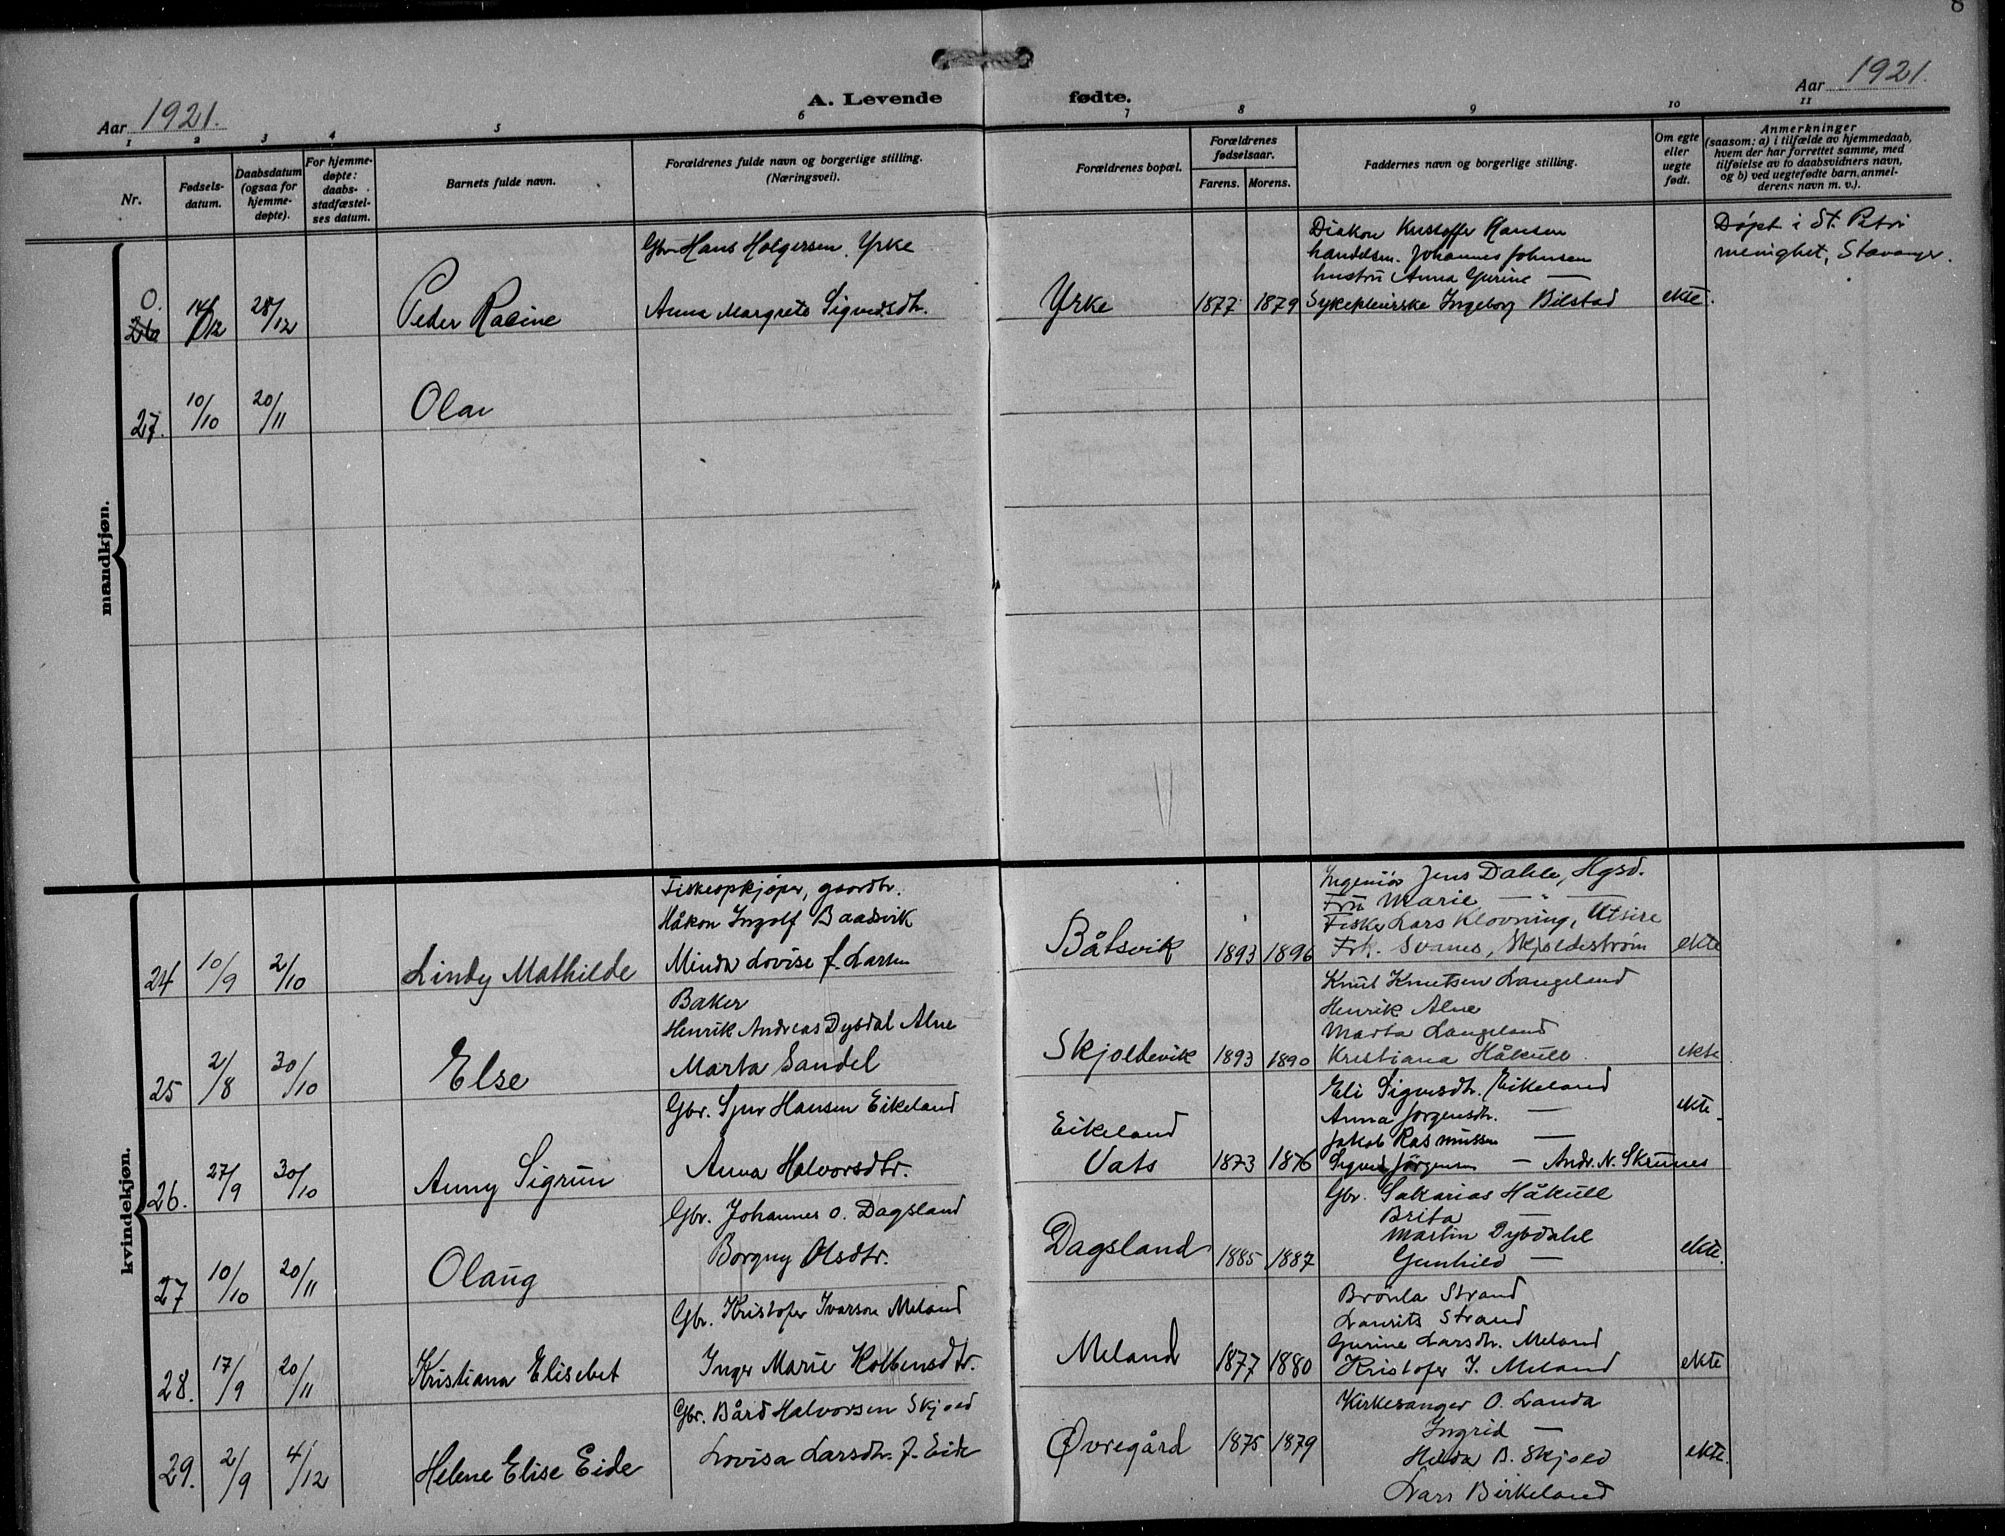 8
Aar 1921.
A. Levende fødte.
Aar 1921.
1 2 3 4 5 6 7 8 9 10 11
Nr.
Fødsels-
datum.
Daabsdatum
(ogsaa for
hjemme-
døpte).
For hjemme-
døpte:
daabs-
stadfæstel-
ses datum.
Barnets fulde navn.
Forældrenes fulde navn og borgerlige stilling.
(Næringsvei).
Forældrenes bopæl.
Forældrenes
fødselsaar.
Farens. Morens.
Faddernes navn og borgerlige stilling.
Om egte
eller
uegte
født.
Anmerkninger
(saasom: a) i tilfælde av hjemmedaab,
hvem der har forrettet samme, med
tilføielse av to daabsvidners navn,
og b) ved uegtefødte barn, anmel-
derens navn m. v.).
mandkjøn.
0.
26 14/12 28/12 Peder Racine
Gbr Hans Holgersen Yrke
Anna Margrete Sigvdsdtr.
Yrke 1877 1879
Diakon Kristoffer Hansen
handelsm. Johannes Johnsen
hustru Anna Gurine —
Sykepleierske Ingeborg Bilstad
ekte.
Døpt i St. Petri
menighet, Stavanger.
27. 10/10 20/11 Olav
kvindekjøn.
24 10/9 2/10 Lindy Mathilde
Fiskeopkjøper, gaardbr.
Håkon Ingolf Baadsvik
Minda Lovise f. Larsen
Båtsvik 1893 1896
Ingeniør Jens Dahle, Hgsd.
Fru Marie — " —
Fisker Lars Klovning, Utsire
Frk. Svanes, Skjoldestrøm
ekte
25 2/8 30/10 Else
Baker
Henrik Andreas Dybdal Alne
Marta Sandel
Skjoldevik 1893 1890
Knut Knutsen Langeland
Henrik Alne
Marta Langeland
Kristiana Håkull
ekte
26. 27/9 30/10 Anny Sigrun
Gbr. Sjur Hansen Eikeland
Anna Halvorsdtr.
Eikeland
Vats 1873 1876
Eli Sigvesdtr. Eikeland
Anna Jørgensdtr. —
Jakob Rasmussen —
Sigved Jørgensen — Andr. N. Skrunes
ekte.
27 10/10 20/11 Olaug
Gbr. Johannes O. Dagsland
Borgny Olsdtr.
Dagsland 1885 1887
Gbr. Sakarias Håkull
Brita —
Martin Dybdahl
Gunhild —
ekte.
28. 17/9 20/11 Kristiana Elisebet
Gbr. Kristofer Ivarson Meland
Inger Marie Kolbensdtr.
Meland 1877 1880
Bronla Strand
Laurits Strand
Gurine Larsdtr. Meland
Kristofer I. Meland
ekte
29. 2/9 4/12 Helene Elise Eide
Gbr. Bård Halvorsen Skjold
Lovisa Larsdtr. f. Eide
Øvregård 1875 1879
Kirkesanger O. Landa
Ingrid —
Hilda B. Skjold
Lars Birkeland
ekte.